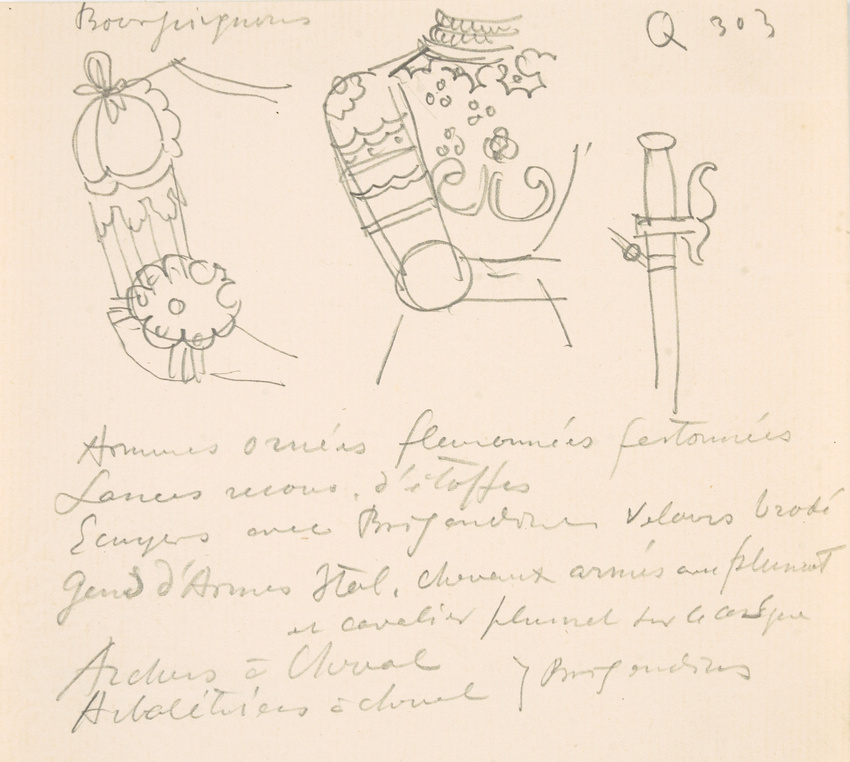 Bourguignons
Q 303
Armures ornées fleuronnées festonnées
Lances recouv. d'étoffes
Ecuyers avec Brigandines Velours brodé
Gens d'Armes Ital. chevaux armés avec plumet
et cavalier plumet sur le casque
Archers à Cheval
Arbalétriers à cheval } Brigandines